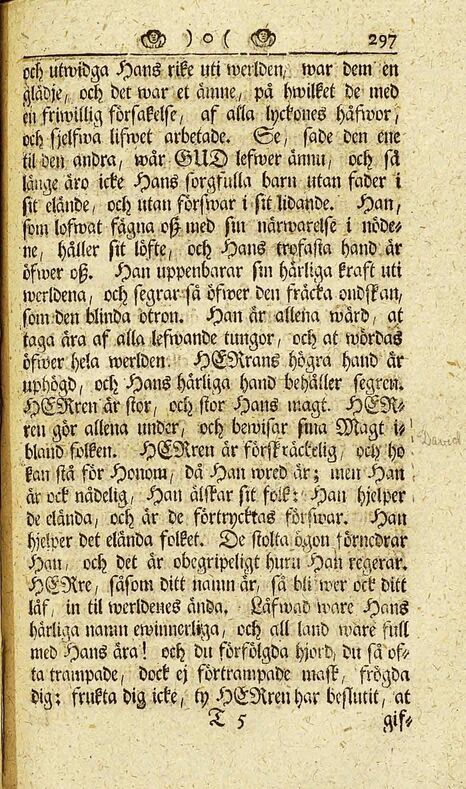 ) o ( 297
och utwidga Hans rike uti werlden, war dem en
glädje, och det war et ämne, på hwilket de med
en friwillig försakelse, af alla lyckones håfwor,
och sjelfwa lifwet arbetade. Se, sade den ene
til den andra, wår GUD lefwer ännu, och så
länge äro icke Hans sorgfulla barn utan fader i
sit elände, och utan förswar i sit lidande. Han,
som lofwat fägna oß med sin närwarelse i nöde-
ne, håller sit löfte, och Hans trofasta hand är
öfwer oß. Han uppenbarar sin härliga kraft uti
werldena, och segrar så öfwer den fräcka ondskan,
som den blinda otron. Han är allena wärd, at
taga ära af alla lefwande tungor, och at wördas
öfwer hela werlden. HERrans högra hand är
uphögd, och Hans härliga hand behåller segren.
HERren är stor, och stor Hans magt. HER-
ren gör allena under, och bewisar sina Magt i-
bland folken. HERren är förskräckelig, och ho
kan stå för Honom, då Han wred är; men Han
är ock nådelig, Han älskar sit folk: Han hjelper
de elända, och är de förtrycktas förswar. Han
hjelper det elända folket. De stolta ögon förnedrar
Han, och det är obegripeligt huru Han regerar.
HERre, såsom ditt namn är, så bliswer ock ditt
låf, in til werldenes ända. Låfwad ware Hans
härliga namn ewinnerliga, och all land ware full
med Hans ära! och du förfölgda hjord, du så of-
ta trampade, dock ej förtrampade mask, frögda
dig; frukta dig icke, ty HERren har beslutit, at
T 5 gif-
David